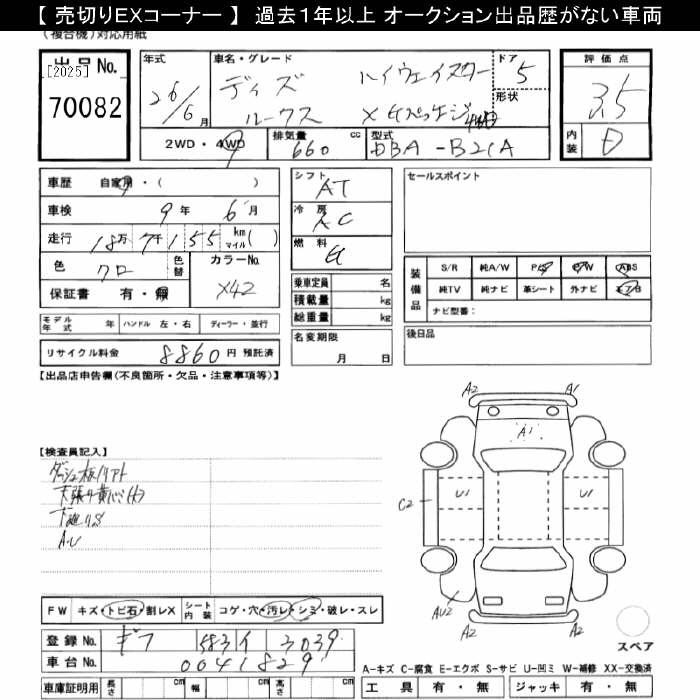 【 売切りEXコーナー 】 過去1年以上 オークション出品歴がない車両
(複合機)対応用紙
出品No.
[2025]
70082
年式
26/6月
車名・グレード
ディズ ハイウェイスター
ルークス X
ドア
5
形状
2WD・4WD
排気量
660
cc
型式
DBA-B21A
評価点
3.5
内装
D
車歴 自家用・( )
車検 9年 6月
走行 18万7千155 km マイル( )
色 クロ
色替
カラーNo.
X42
保証書 有・無
シフト
AT
冷房
AC
燃料
G
乗車定員 名
積載量 kg
総重量 kg
名変期限
月 日
セールスポイント
装備品
S/R 純A/W P/S P/W ABS
純TV 純ナビ 革シート 外ナビ エアB
ナビ型番：
後日品
モデル年式 年
ハンドル 左・右
ディーラー・並行
リサイクル料金 8860円 預託済
【出品店申告欄(不良箇所・欠品・注意事項等)】
【検査員記入】
ダッシュ板ハリアト
下廻りサビ
A・U
A2 A1
A1
U1 U1
C2
AU2 A2
スペア
FW キズ・トビ石・割レX
シート内装 コゲ・穴・汚レ・シミ・破レ・スレ
登録No. ギフ 583 イ 3039
車台No. 0041829
車庫証明用 長さ cm 幅 cm 高さ cm
A-キズ C-腐食 E-エクボ S-サビ U-凹ミ W-補修 XX-交換済
工具 有・無 ジャッキ 有・無